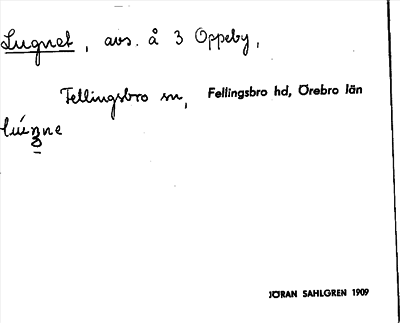 Lugnet, avs. å 3 Oppeby,
Fellingsbro sn, Fellingsbro hd, Örebro län
JÖRAN SAHLGREN 1909